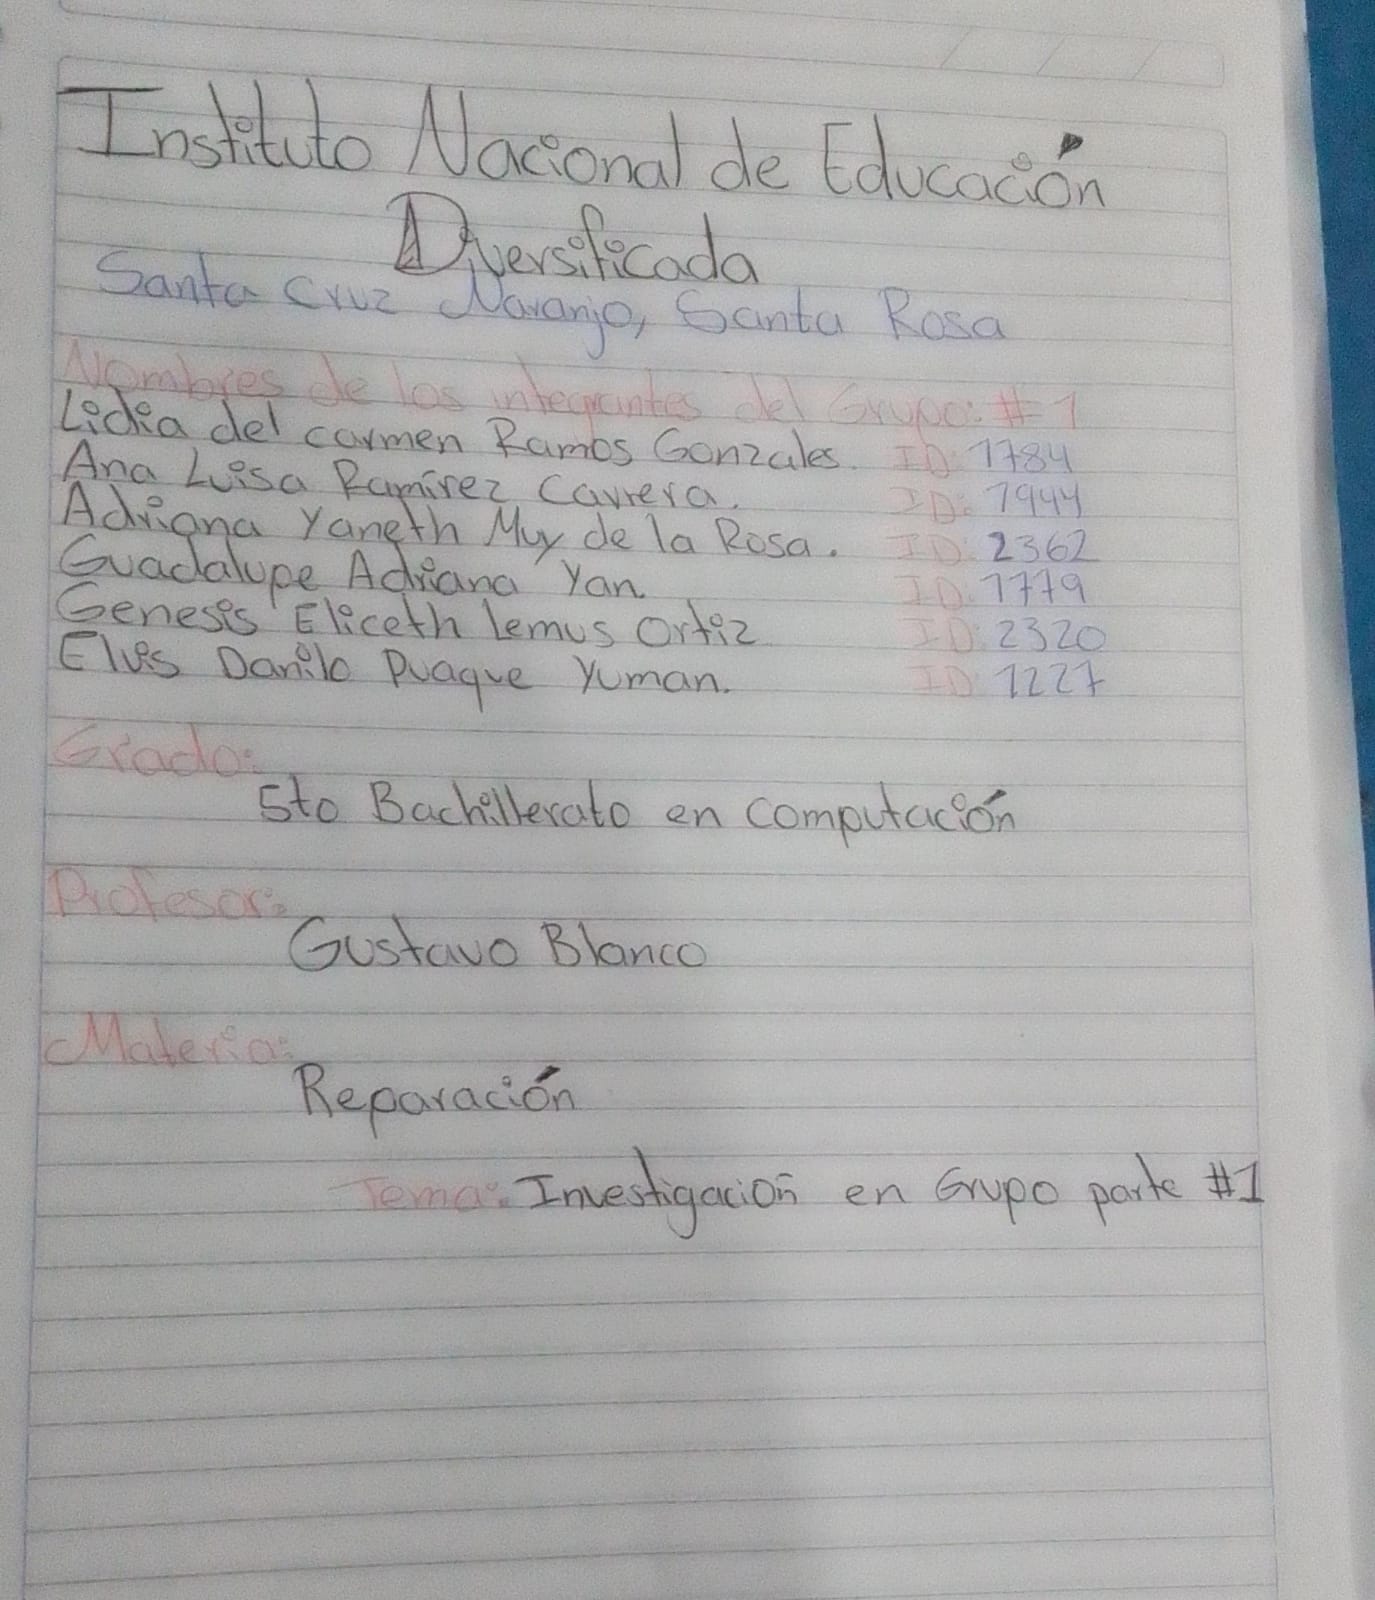 Instituto Nacional de Educación
Diversificada
Santa Cruz Naranjo, Santa Rosa
Nombres de los integrantes del Grupo: #1
Lidia del carmen Ramos Gonzales. ID: 1784
Ana Luisa Ramírez Carrera. ID: 1944
Adriana Yaneth Muy de la Rosa. ID: 2362
Guadalupe Adriana Yan. ID: 1779
Genesis Eliceth lemus Ortiz ID: 2320
Elvis Danilo Puaque Yuman. ID: 1227
Grado:
5to Bachillerato en computación
Profesor:
Gustavo Blanco
Materia:
Reparación
Tema: Investigación en Grupo parte #1